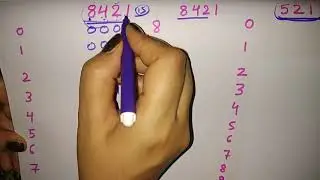 8421 15 8421 521
0 000 8 0
1 00 1
2 2
3 3
4 4
5 5
6 6
7 7
8